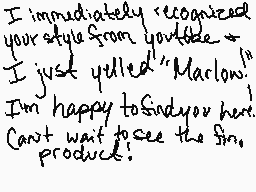 I immediately recognized
your style from youtube +
I just yelled "Marlow!"
I'm happy to find you here!
Can't wait to see the fin.
product!